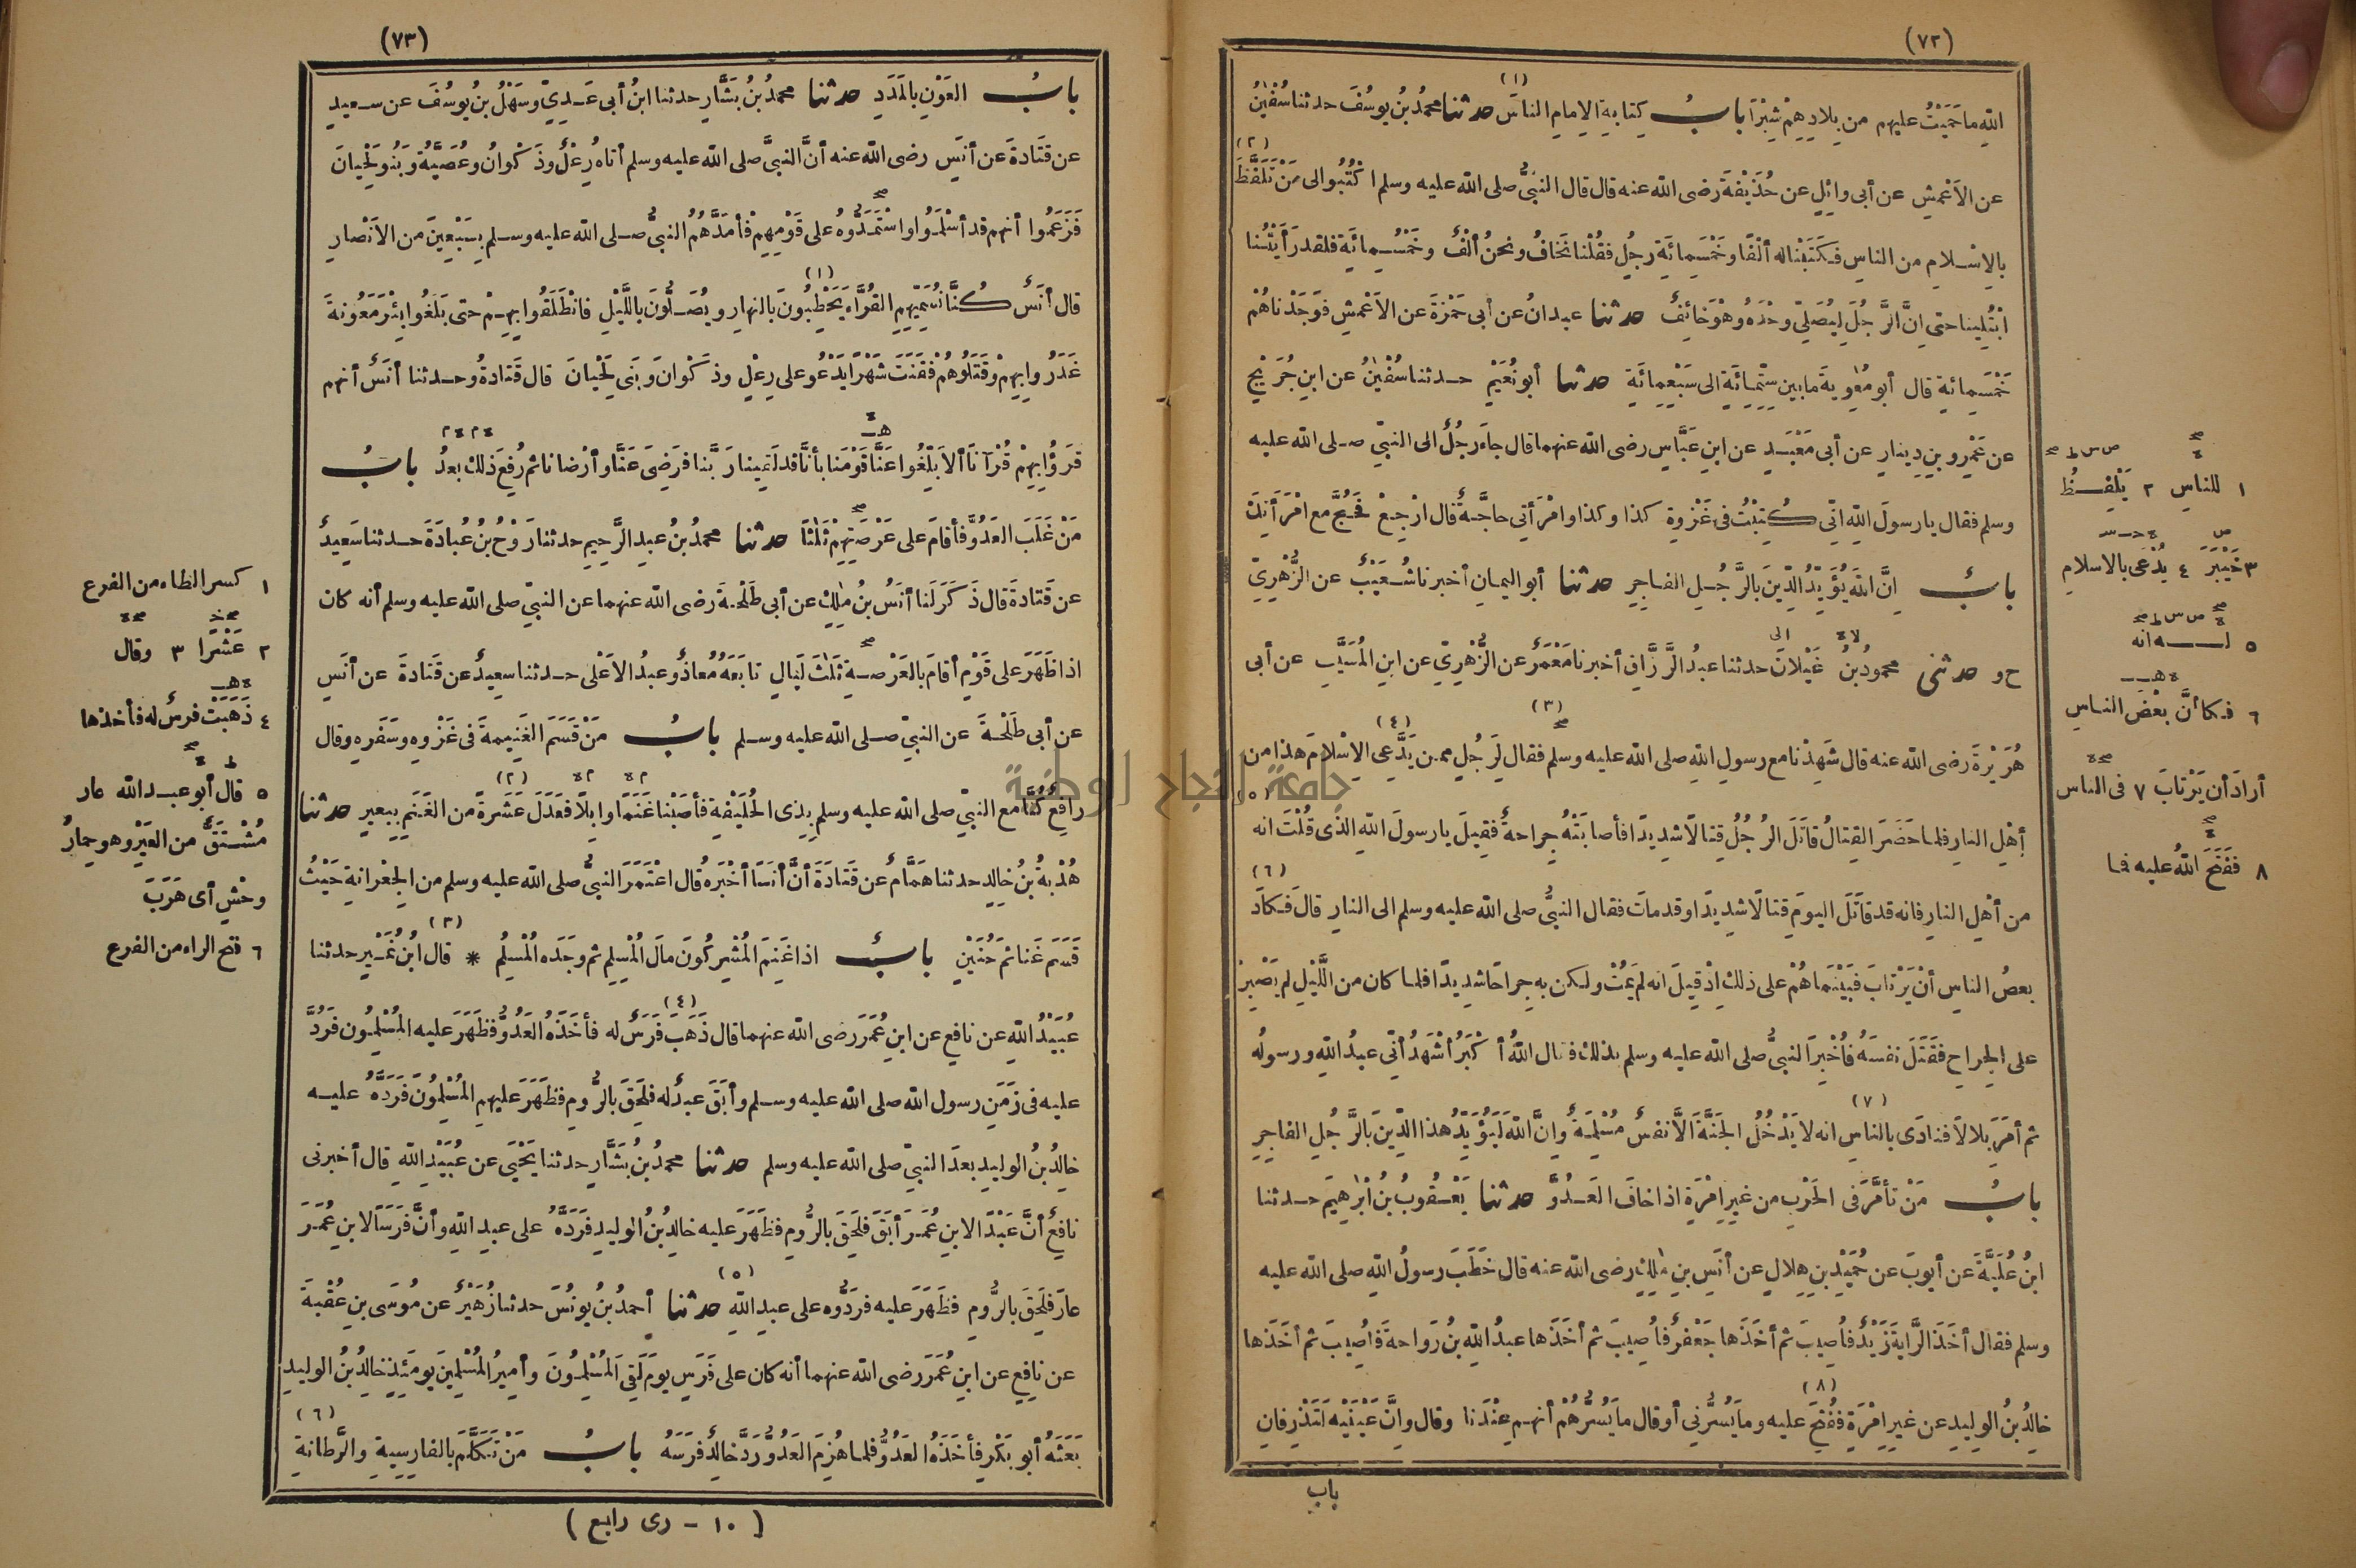 (٧٢)
(١)
الله ما حَمَيْتُ عليهم من بِلادِهِمْ شِبْرًا بابُ كِتابةِ الإمامِ الناسَ حدثنا محمدُ بنُ يوسُفَ حدثنا سُفْيٰنُ
(٢)
عن الأَعْمشِ عن أبى وائِلٍ عن حُذَيْفةَ رضى الله عنه قال قال النبىُّ صلى الله عليه وسلم اكْتُبُوا لى مَنْ تَلَفَّظَ
بالإسْلامِ من الناسِ فَكَتَبْنا له ألْفًا وخَمْسَمِائَةِ رجُلٍ فقُلْنا نَخافُ ونحنُ ألْفٌ وخَمْسُمِائَةٍ فلقد رَأَيْتُنا
ابْتُلِينا حتى إنَّ الرَّجُلَ لِيُصَلِّى وحْدَهُ وهْوَ خائِفٌ حدثنا عبدانُ عن أبى حَمْزةَ عن الأَعْمشِ فوَجَدْناهُمْ
خَمْسَمِائةٍ قال أبو مُعٰوِيةَ ما بين سِتِّمِائَةٍ الى سَبْعِمِائَةٍ حدثنا أبو نُعَيْمٍ حدثنا سُفْيٰنُ عن ابنِ جُرَيْجٍ
عن عَمْرِو بنِ دِينارٍ عن أبى مَعْبَدٍ عن ابنِ عَبَّاسٍ رضى الله عنهما قال جاءَ رجُلٌ الى النبىِّ صلى الله عليه
وسلم فقال يا رسولَ اللهِ انِّى كُتِبْتُ فى غَزْوةِ كذا وكذا وامْرَأتى حاجَّةٌ قال ارْجِعْ فَحُجَّ مع امْرَأَتِكَ
بابٌ إنَّ اللهَ يُؤَيِّدُ الدِّينَ بالرَّجُلِ الفاجِرِ حدثنا أبو اليمانِ أخبرنا شُعَيْبٌ عن الزُّهْرِىِّ
ح و حدثنى محمودُ بنُ غَيْلانَ حدثنا عبدُ الرَّزَّاقِ أخبرنا مَعْمَرٌ عن الزُّهْرِىِّ عن ابنِ المُسَيَّبِ عن أبى
(٣) (٤)
هُرَيْرةَ رضى الله عنه قال شَهِدْنا مع رسولِ اللهِ صلى الله عليه وسلم فقال لِرَجُلٍ ممن يَدَّعِى الإسْلامَ هذا من
(٥)
أهْلِ النارِ فلما حَضَرَ القِتالُ قاتَلَ الرجُلُ قِتالًا شديدًا فأصابَتْهُ جِراحةٌ فقِيلَ يا رسولَ اللهِ الذى قُلْتَ انه
(٦)
من أهْلِ النارِ فانه قد قاتَلَ اليومَ قتالًا شديدًا وقد ماتَ فقال النبىُّ صلى الله عليه وسلم الى النارِ قال فَكادَ
بعضُ الناسِ أنْ يَرْتابَ فبَيْنَما هُمْ على ذلكَ إذْ قِيلَ انه لم يَمُتْ ولكن به جِراحًا شديدًا فلما كان من اللَّيْلِ لم يَصْبِرْ
على الجِراحِ فقَتَلَ نفسَهُ فأُخْبِرَ النبىُّ صلى الله عليه وسلم بذلك فقال اللهُ أكْبَرُ أشْهَدُ أنِّى عبدُ اللهِ ورسولُه
(٧)
ثم أمَرَ بلالًا فنادَى بالناسِ انه لا يَدْخُلُ الجَنَّةَ الَّا نفسٌ مُسْلِمَةٌ وإنَّ اللهَ لَيُؤَيِّدُ هذا الدِّينَ بالرَّجُلِ الفاجِرِ
بابُ مَنْ تأمَّرَ فى الحَرْبِ من غيرِ إمْرَةٍ اذا خافَ العَدُوَّ حدثنا يَعْقُوبُ بنُ ابْرٰهِيمَ حدثنا
ابنُ عُلَيَّةَ عن أيوبَ عن حُمَيْدِ بنِ هِلالٍ عن أنَسِ بنِ مٰلِكٍ رضى الله عنه قال خَطَبَ رسولُ اللهِ صلى الله عليه
وسلم فقال أخَذَ الرَّايةَ زَيْدٌ فأُصِيبَ ثم أخَذَها جَعْفرٌ فأُصِيبَ ثم أخَذَها عبدُ اللهِ بنُ رَواحةَ فأُصِيبَ ثم أخَذَها
(٨)
خالدُ بنُ الوليدِ عن غيرِ إمْرَةٍ ففُتِحَ عليه وما يَسُرُّنى أو قال ما يَسُرُّهُمْ أنهم عِنْدَنا وقال وإنَّ عَيْنَيْهِ لَتَذْرِفانِ
باب
١ للناسِ ٢ يَلْفِظُ
٣ خَيْبَرَ ٤ يُدْعَى بالاسلامِ
٥ له انه
٦ فكأنَّ بعْضَ الناسِ
أرادَ أن يَرْتابَ ٧ فى الناس
٨ ففَتَحَ اللهُ عليه فما
جامعة النجاح الوطنية
(٧٣)
بابُ العَوْنِ بالمَدَدِ حدثنا محمدُ بنُ بَشَّارٍ حدثنا ابنُ أبى عَدِىٍّ وسَهْلُ بنُ يوسُفَ عن سعيدٍ
عن قَتادةَ عن أنَسٍ رضى الله عنه أنَّ النبىَّ صلى الله عليه وسلم أتاهُ رِعْلٌ وذَكْوانُ وعُصَيَّةُ وبَنُو لَحْيانَ
فَزَعَمُوا أنهم قد أسْلَمُوا واسْتَمَدُّوهُ على قَوْمِهِمْ فأمَدَّهُمُ النبىُّ صلى الله عليه وسلم بِسَبْعِينَ من الأنْصارِ
(١)
قال أنَسٌ كُنَّا نُسَمِّيهِمِ القُرَّاءَ يَحْطِبُونَ بالنهارِ ويُصَلُّونَ بالليْلِ فانْطَلَقُوا بِهِمْ حتى بَلَغُوا بِئْرَ مَعُونةَ
غَدَرُوا بِهِمْ وقَتَلُوهُمْ فقَنَتَ شَهْرًا يَدْعُو على رِعْلٍ وذَكْوانَ وبَنِى لَحْيانَ قال قَتادةُ وحدثنا أنَسٌ أنهم
قَرَؤُا بِهِمْ قُرْآنًا ألَا بَلِّغُوا عَنَّا قَوْمَنا بأنَّا قد لَقِينا رَبَّنا فرَضِىَ عَنَّا وأرْضانا ثم رُفِعَ ذلك بعدُ بابُ
مَنْ غَلَبَ العَدُوَّ فأقامَ على عَرْصَتِهِمْ ثَلٰثًا حدثنا محمدُ بنُ عبدِ الرَّحِيمِ حدثنا رَوْحُ بنُ عُبادَةَ حدثنا سَعِيدٌ
عن قَتادةَ قال ذَكَرَ لَنا أنَسُ بنُ مٰلِكٍ عن أبى طَلْحةَ رضى الله عنهما عن النبىِّ صلى الله عليه وسلم أنه كان
اذا ظَهَرَ على قَوْمٍ أقامَ بالعَرْصةِ ثَلٰثَ لَيَالٍ تابَعَهُ مُعاذٌ وعبدُ الأَعْلَى حدثنا سعيدٌ عن قَتادةَ عن أنَسٍ
عن أبى طَلْحةَ عن النبىِّ صلى الله عليه وسلم بابُ مَنْ قَسَمَ الغَنِيمةَ فى غَزْوِهِ وسَفَرِهِ وقال
(٢)
رافِعٌ كُنَّا مع النبىِّ صلى الله عليه وسلم بِذِى الحُلَيْفةِ فأصَبْنا غَنَمًا وإبِلًا فعَدَلَ عَشَرةً من الغَنَمِ بِبعيرٍ حدثنا
هُدْبةُ بنُ خالدٍ حدثنا هَمَّامٌ عن قَتادَةَ أنَّ أنَسًا أخْبَرَهُ قال اعْتَمَرَ النبىُّ صلى الله عليه وسلم من الجِعْرانةِ حَيْثُ
(٣)
قَسَمَ غَنائمَ حُنَيْنٍ بابٌ اذا غَنِمَ المُشْرِكُونَ مالَ المُسْلِمِ ثم وجَدَهُ المُسْلِمُ * قال ابنُ نُمَيْرٍ حدثنا
(٤)
عُبَيْدُ اللهِ عن نافِعٍ عن ابنِ عُمَرَ رضى الله عنهما قال ذَهَبَ فَرَسٌ له فأخَذَهُ العَدُوُّ فظَهَرَ عليه المُسْلِمُونَ فَرُدَّ
عليه فى زَمَنِ رسول الله صلى الله عليه وسلم وأبَقَ عبدٌ له فلَحِقَ بالرُّومِ فظَهَرَ عليهمِ المُسْلِمُونَ فَرَدَّهُ عليه
خالِدُ بنُ الوليدِ بعدَ النبىِّ صلى الله عليه وسلم حدثنا محمدُ بنُ بَشَّارٍ حدثنا يَحْيَى عن عُبَيْدِ اللهِ قال أخبرنى
نافِعٌ أنَّ عَبْدًا لابنِ عُمَرَ أبَقَ فلَحِقَ بالرُّومِ فظَهَرَ عليه خالدُ بنُ الوليدِ فَرَدَّهُ على عبدِ اللهِ وأنَّ فَرَسًا لابنِ عُمَرَ
(٥)
عارَ فلَحِقَ بالرُّومِ فظَهَرَ عليه فرَدُّوهُ على عبدِ اللهِ حدثنا أحمدُ بنُ يونُسَ حدثنا زُهَيْرٌ عن مُوسَى بنِ عُقْبةَ
عن نافِعٍ عن ابنِ عُمَرَ رضى الله عنهما أنه كان على فَرَسٍ يومَ لَقِىَ المُسْلِمُونَ وأمِيرُ المُسْلِمِينَ يومَئِذٍ خالِدُ بنُ الوليدِ
(٦)
بَعَثَهُ أبو بَكْرٍ فأخَذَهُ العَدُوُّ فلما هُزِمَ العَدُوُّ رَدَّ خالِدٌ فرَسَهُ بابُ مَنْ تَكَلَّمَ بالفارِسِيةِ والرَّطانةِ
(١٠ - رى رابع)
١ كسر الطاء من الفرع
٢ عَشْرًا ٣ وقال
٤ ذَهَبَتْ فرسٌ له فأخذها
٥ قال أبو عبد الله عار
مُشْتَقٌّ من العَيْرِ وهو حِمارُ
وحْشٍ أى هَرَبَ
٦ فتح الراء من الفرع